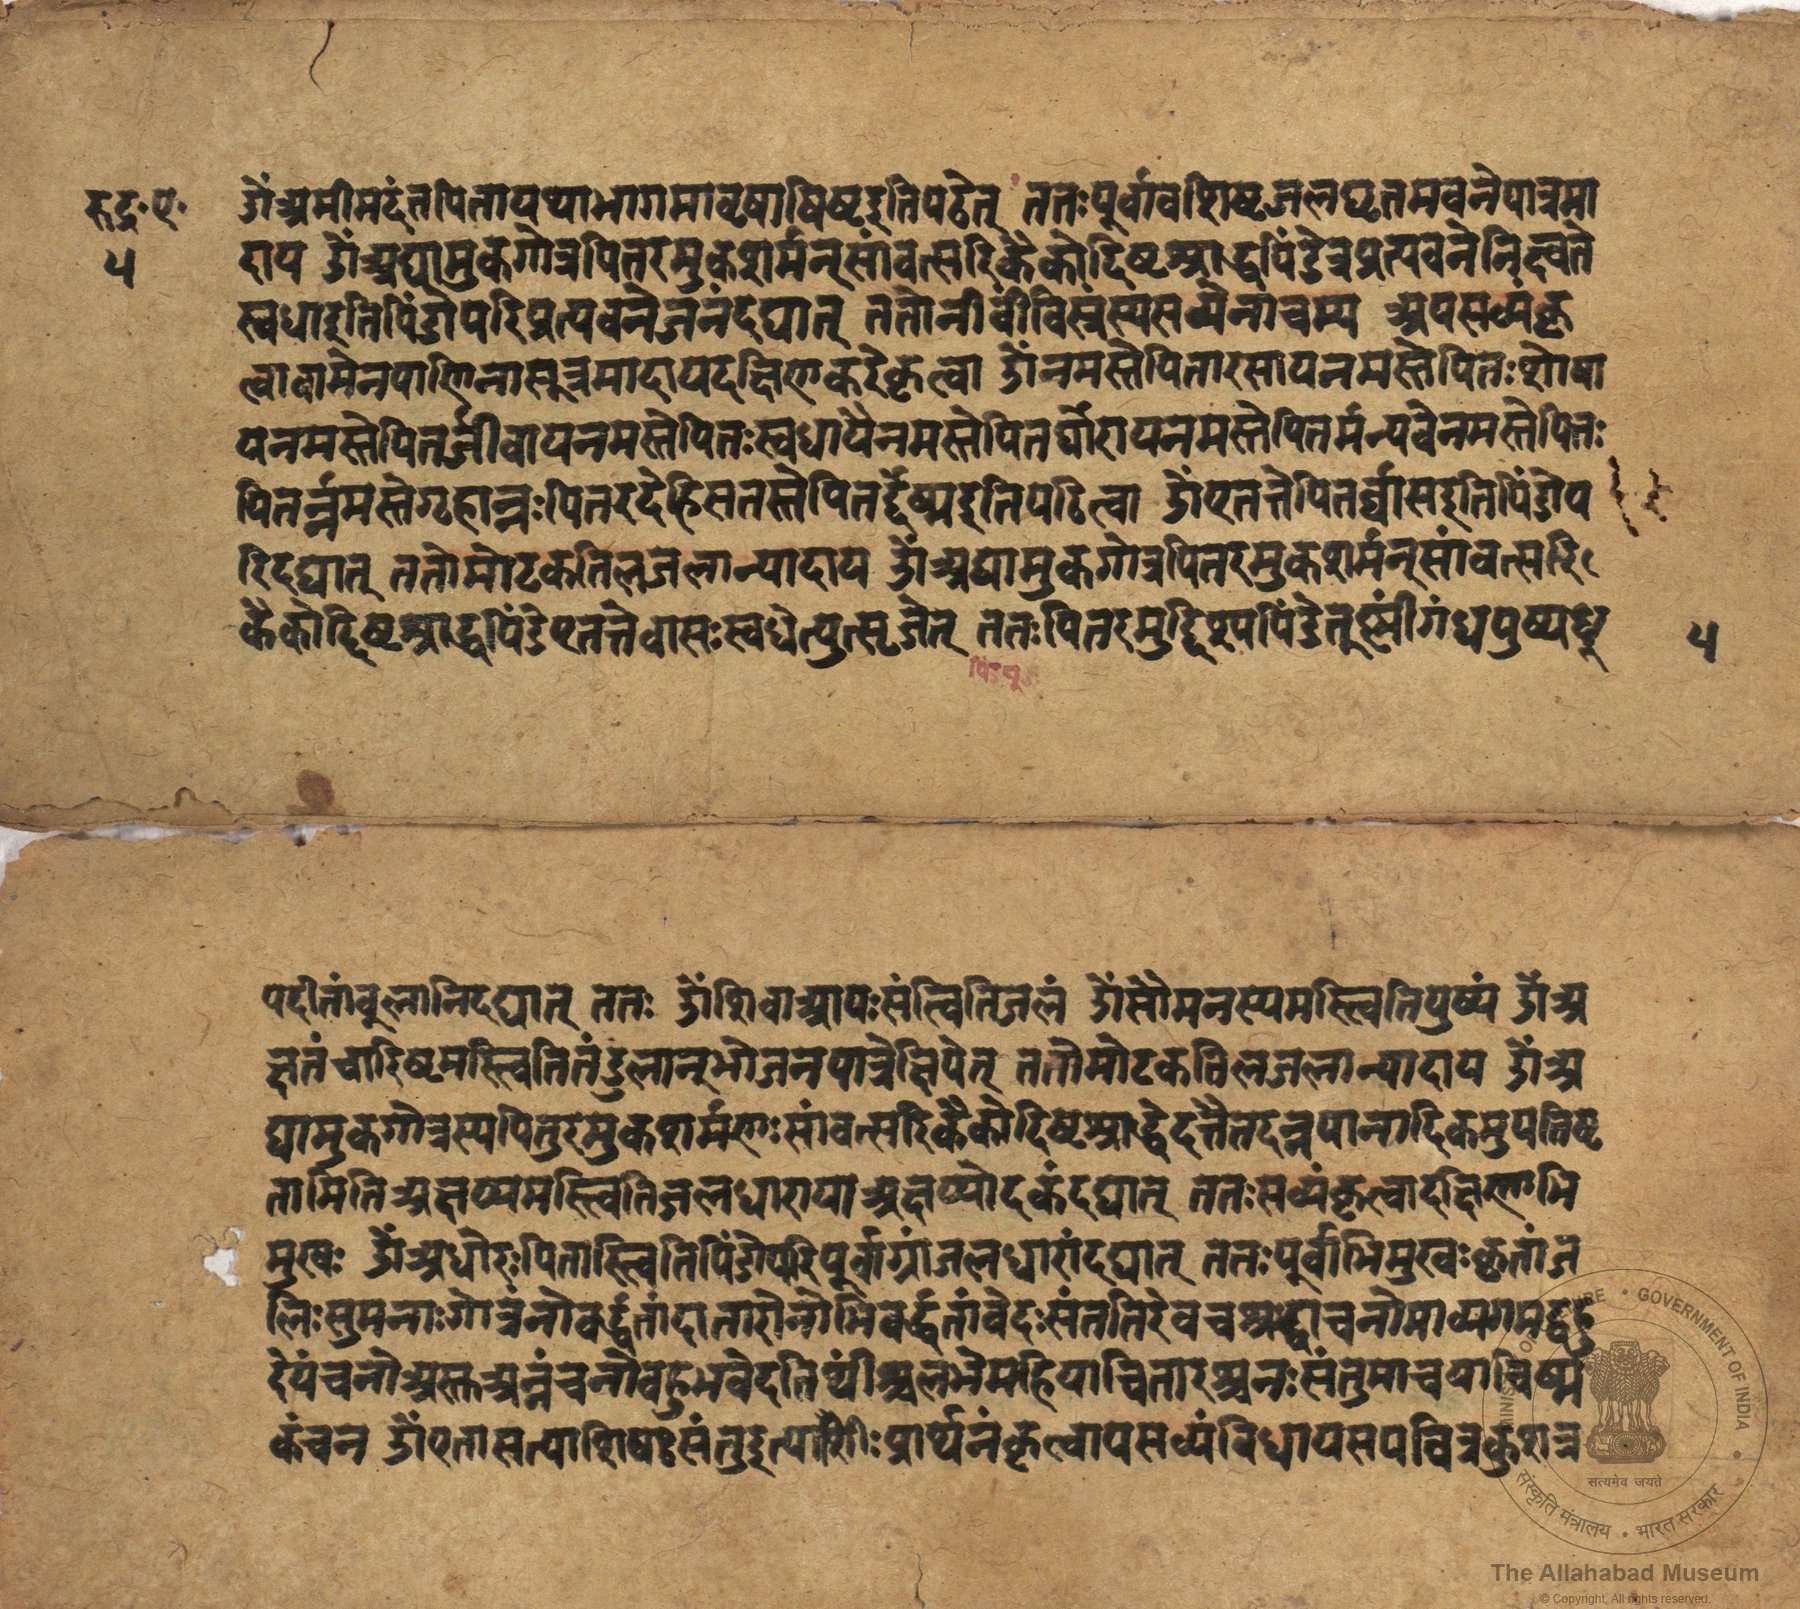 रुद्र॰ ए॰
५
ॐअमीमदंतपितायथाभागमावृषायिष्टइतिपठेत् ततःपूर्वावशिष्टजलघृतमवनेपात्रमा
दाय ॐअद्यामुकगोत्रपितरमुकशर्मन्सांवत्सरिकैकोद्दिष्टश्राद्धपिंडेत्रप्रत्यवनेनिक्ष्वते
स्वधाइतिपिंडोपरिप्रत्यवनेजनंदद्यात् ततोनीवीविस्रंस्यसव्येनाचम्य अपसव्यंकृ
त्वावामेनपाणिनासूत्रमादायदक्षिणकरेकृत्वा ॐनमस्तेपितारसायनमस्तेपितःशोषा
यनमस्तेपितर्जीवायनमस्तेपितःस्वधायैनमस्तेपितर्घोरायनमस्तेपितर्मन्यवेनमस्तेपितः
पितर्न्नमस्तेगृहान्नःपितरदेहिसतस्तेपितर्द्देष्मइतिपठित्वा ॐएतत्तेपितर्व्वासइतिपिंडोप
रिदद्यात् ततोमोटकतिलजलान्यादाय ॐअद्यामुकगोत्रपितरमुकशर्मन्सांवत्सरि
कैकोद्दिष्टश्राद्धपिंडेएतत्तेवासःस्वधेत्युत्सृजेत् ततःपितरमुद्दिश्यपिंडेतूष्णींगंधपुष्पधू
५
पदीतांबुलानिदद्यात् ततः ॐशिवाआपःसंत्वितिजलं ॐसौमनस्यमस्त्वितिपुष्पं ॐअ
क्षतंचारिष्टमस्त्वितितंडुलान्भोजनपात्रेक्षिपेत् ततोमोटकतिलजलान्यादाय ॐअ
द्यामुकगोत्रस्यपितुरमुकशर्मणःसांवत्सरिकैकोदिष्टश्राद्धेदत्तैतदन्नपानादिकमुपतिष्ट
तामितिअक्षय्यमस्त्वितिजलधारायाअक्षय्योदकंदद्यात् ततःसव्यंकृत्वादक्षिणाभि
मुखः ॐअघोरःपितास्त्वितिपिंडोपरिपूर्वाग्रांजलधारांदद्यात् ततःपूर्वाभिमुखःकृतांज
लिःसुमनाःगोत्रंनोवर्द्धतांदातारोनोभिवर्द्धतांवेदःसंततिरेवचश्रद्धाचनोमाव्यगमद्बहु
देयंचनोअस्तुअन्नंचनोबहुभवेदतिथींश्चलभेमहियाचितारश्चनःसंतुमाचयाचिष्म
कंचन ॐएतासत्याशिषःसंतुइत्याशीःप्रार्थनंकृत्वापसव्यंविधायसपवित्रकुशत्र
MINISTRY OF CULTURE • GOVERNMENT OF INDIA
सत्यमेव जयते
संस्कृति मंत्रालय • भारत सरकार
The Allahabad Museum
© Copyright, All rights reserved.